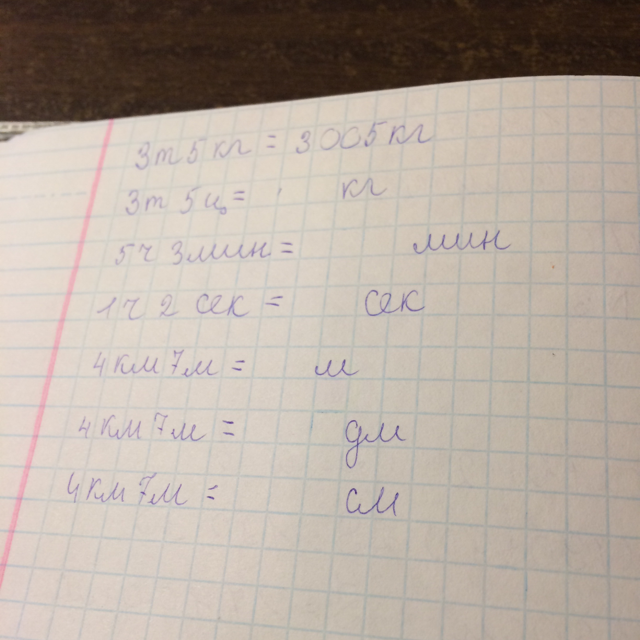 3т 5 кг = 3005 кг
3т 5ц = кг
5ч 3мин = мин
1ч 2 сек = сек
4км 7м = м
4км 7м = дм
4км 7м = см